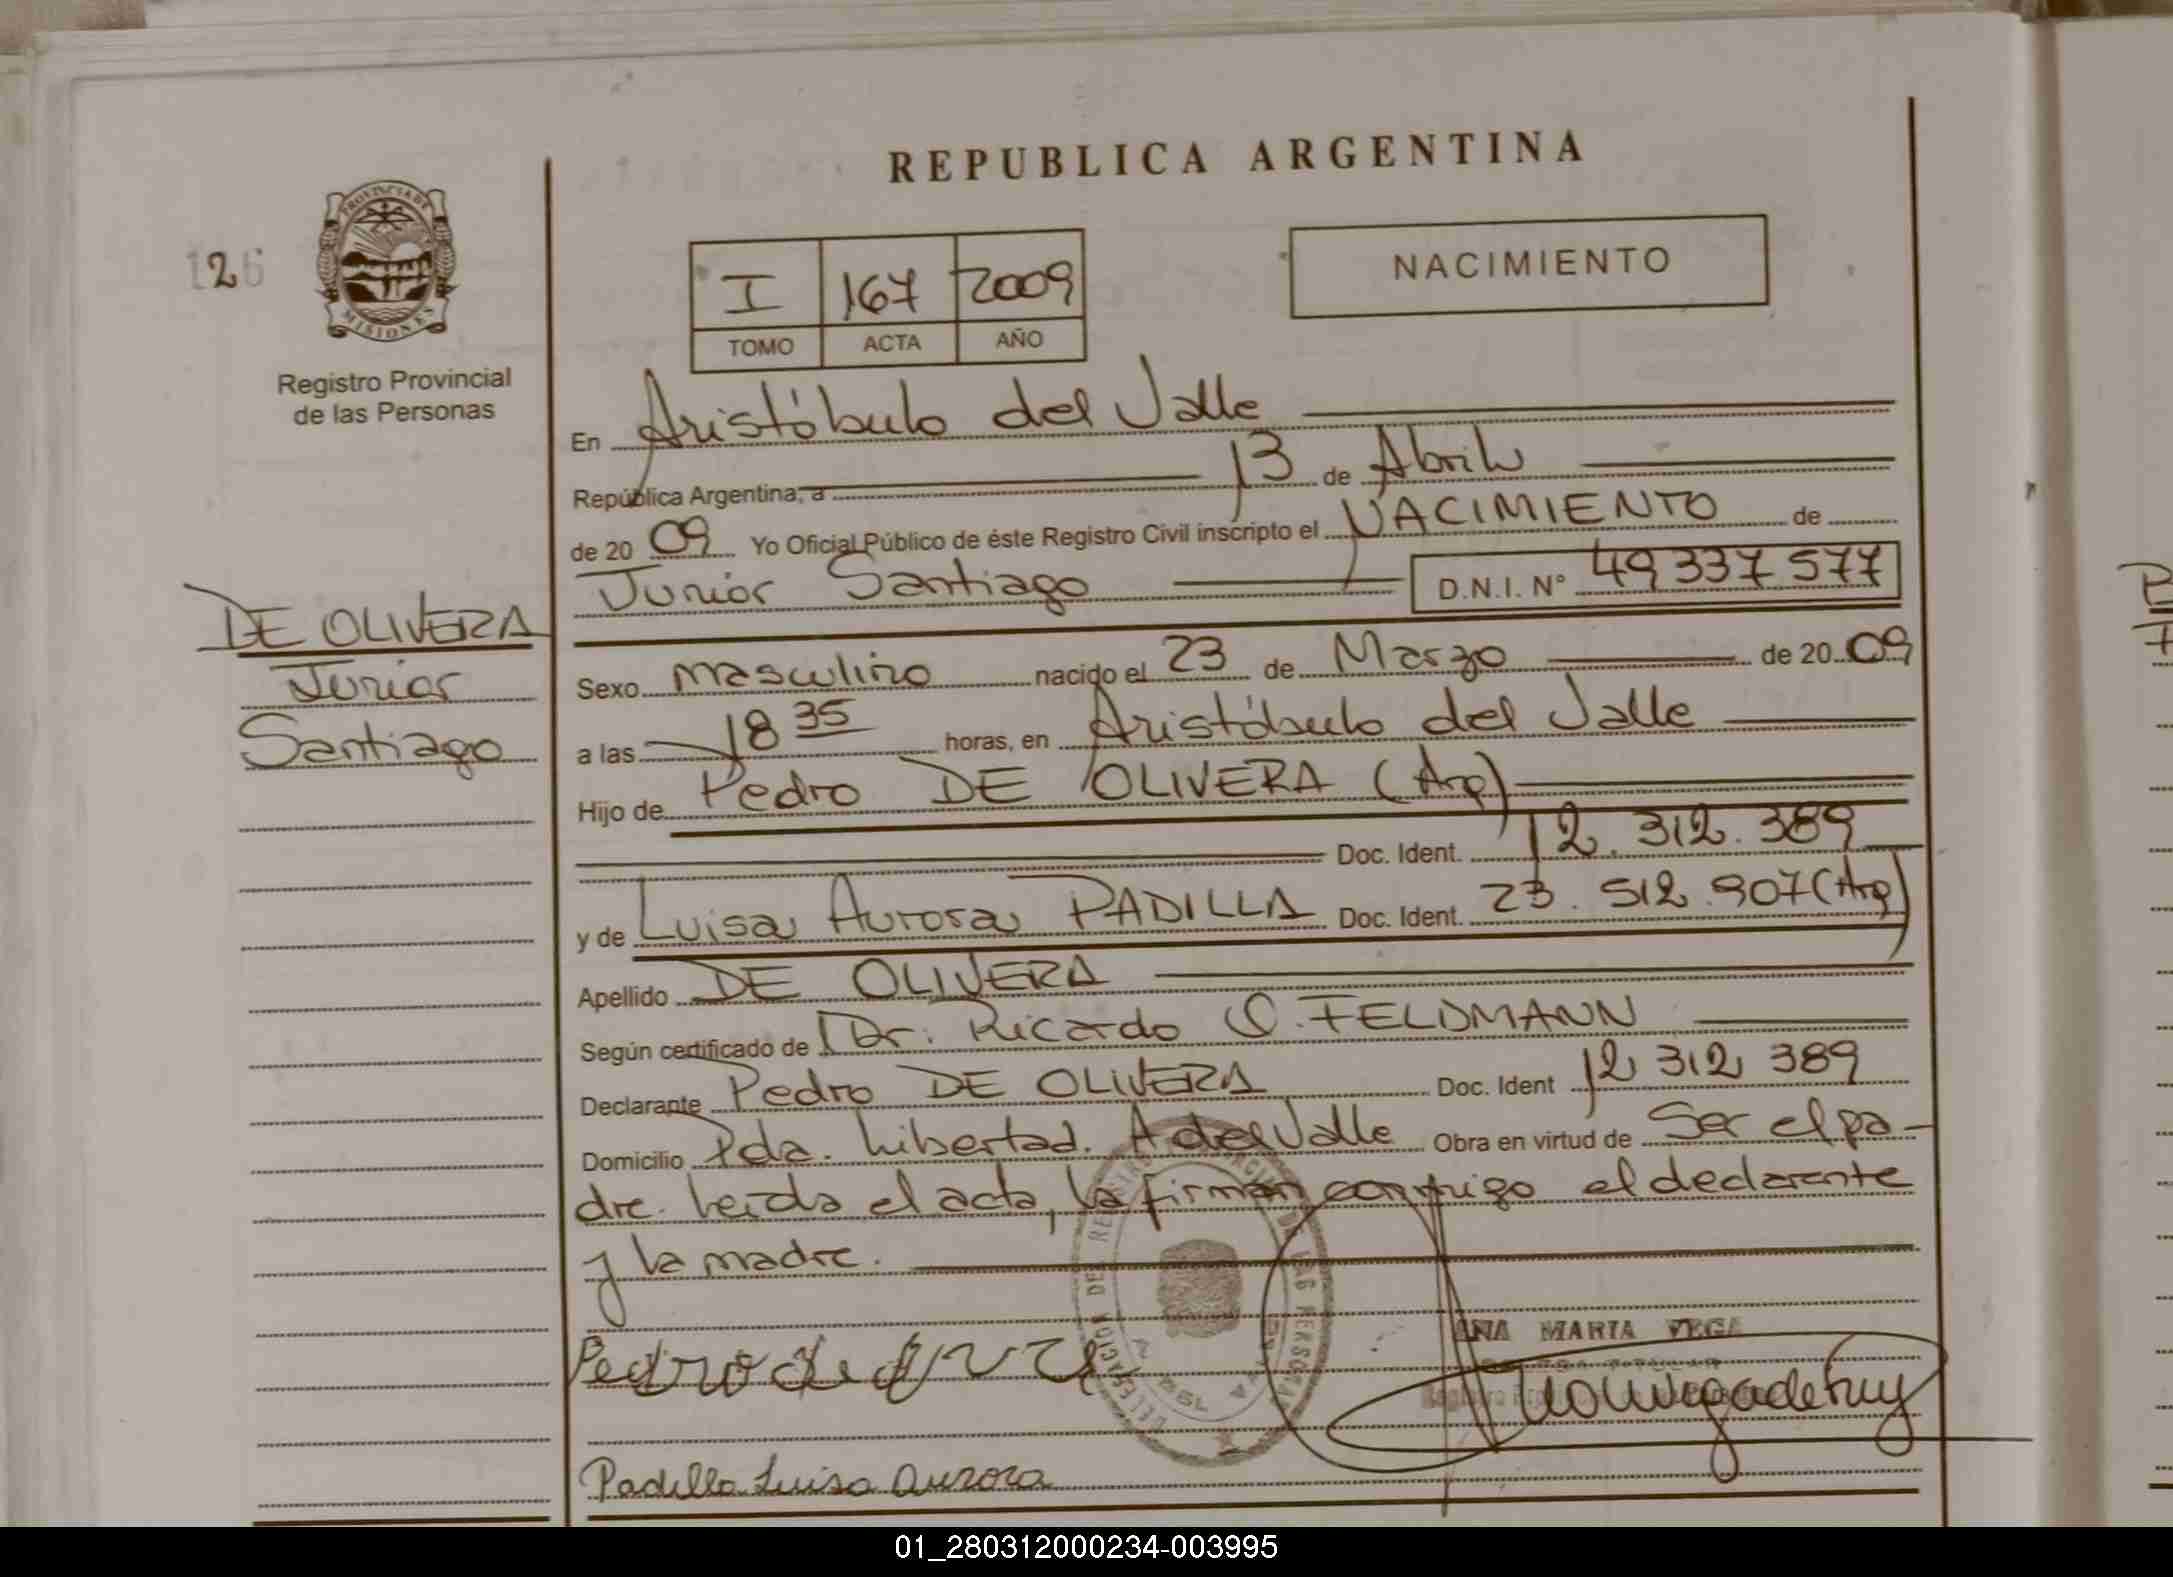 REPUBLICA ARGENTINA
126
PROVINCIA DE
MISIONES
Registro Provincial
de las Personas
NACIMIENTO
I 167 2009
TOMO ACTA AÑO
En Aristóbulo del Valle
República Argentina, a 13 de Abril
de 2009 Yo Oficial Público de éste Registro Civil inscripto el NACIMIENTO de
Junior Santiago D.N.I. Nº 49337577
DE OLIVERA
Junior
Santiago
Sexo masculino nacido el 23 de Marzo de 2009
a las 18 35 horas, en Aristóbulo del Valle
Hijo de Pedro DE OLIVERA (Arg)
Doc. Ident. 12.312.389
y de Luisa Aurora PADILLA Doc. Ident. 23.512.907 (Arg)
Apellido DE OLIVERA
Según certificado de Dr. Ricardo O. FELDMANN
Declarante Pedro DE OLIVERA Doc. Ident 12 312 389
Domicilio Pda. Libertad. A del Valle Obra en virtud de Ser el pa-
dre. Leída el acta, la firman conmigo el declarante
y la madre.
ANA MARIA VEGA
Pedro de
Padilla Luisa Aurora
01_280312000234-003995